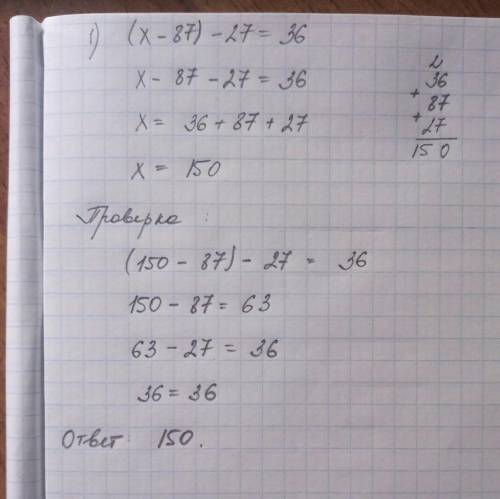 1) (x - 87) - 27 = 36
x - 87 - 27 = 36
x = 36 + 87 + 27
x = 150
2
36
+ 87
+ 27
150
Проверка :
(150 - 87) - 27 = 36
150 - 87 = 63
63 - 27 = 36
36 = 36
Ответ: 150.